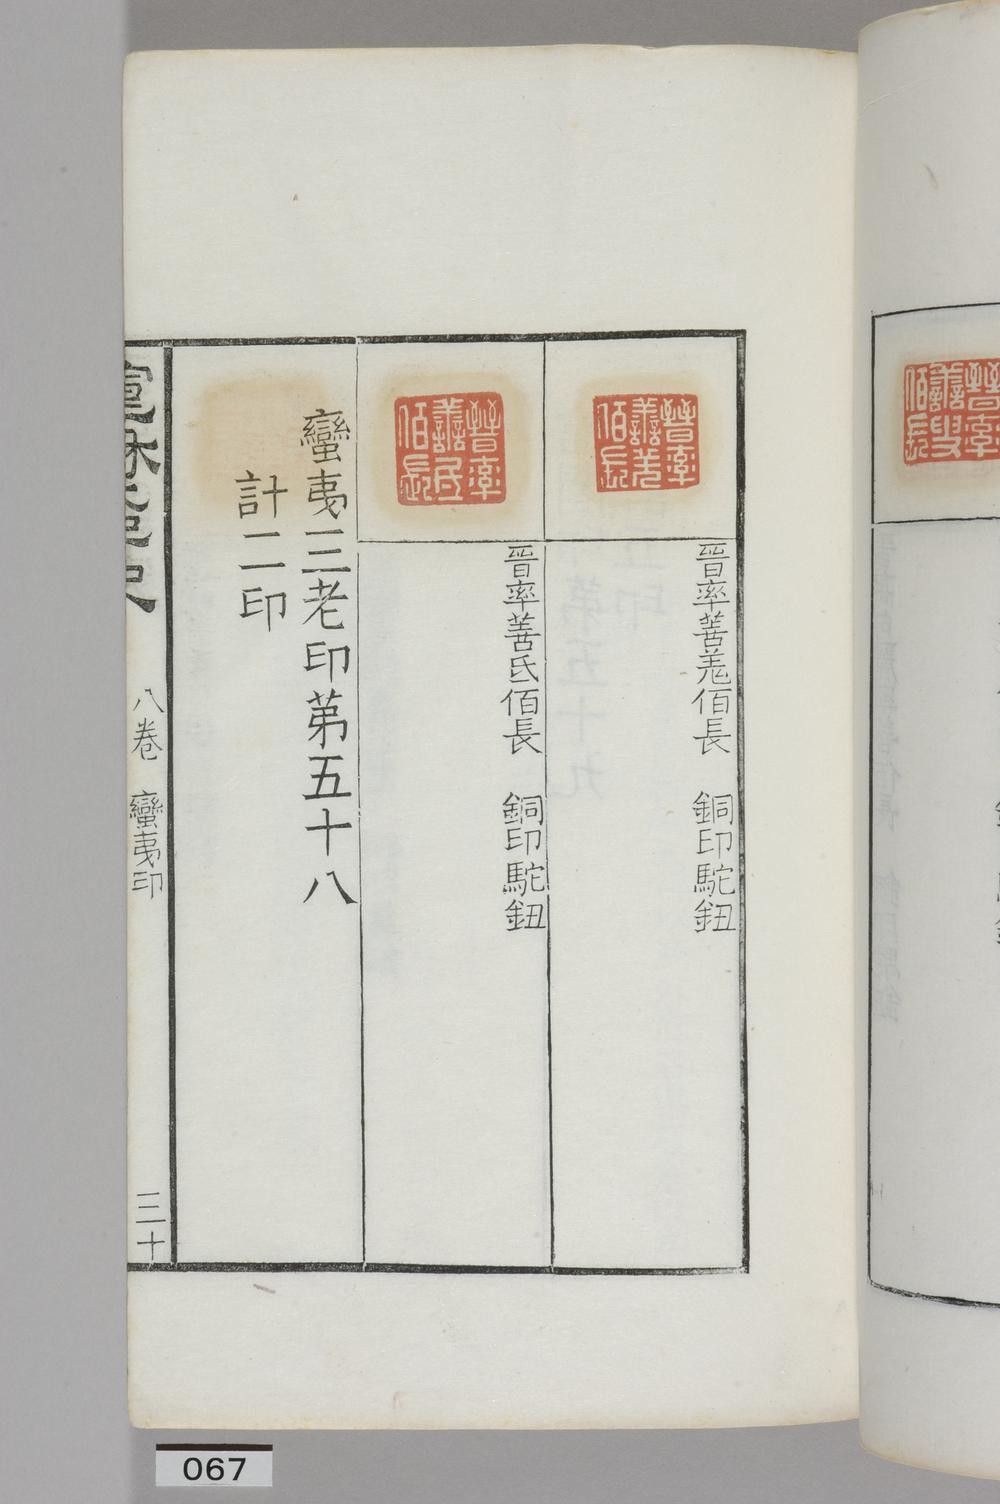 晉率善羌佰長
晉率善羌佰長 銅印駝鈕
晉率善氐佰長
晉率善氐佰長 銅印駝鈕
蠻夷三老印苐五十八
計二印
八卷 蠻夷印
三十
067